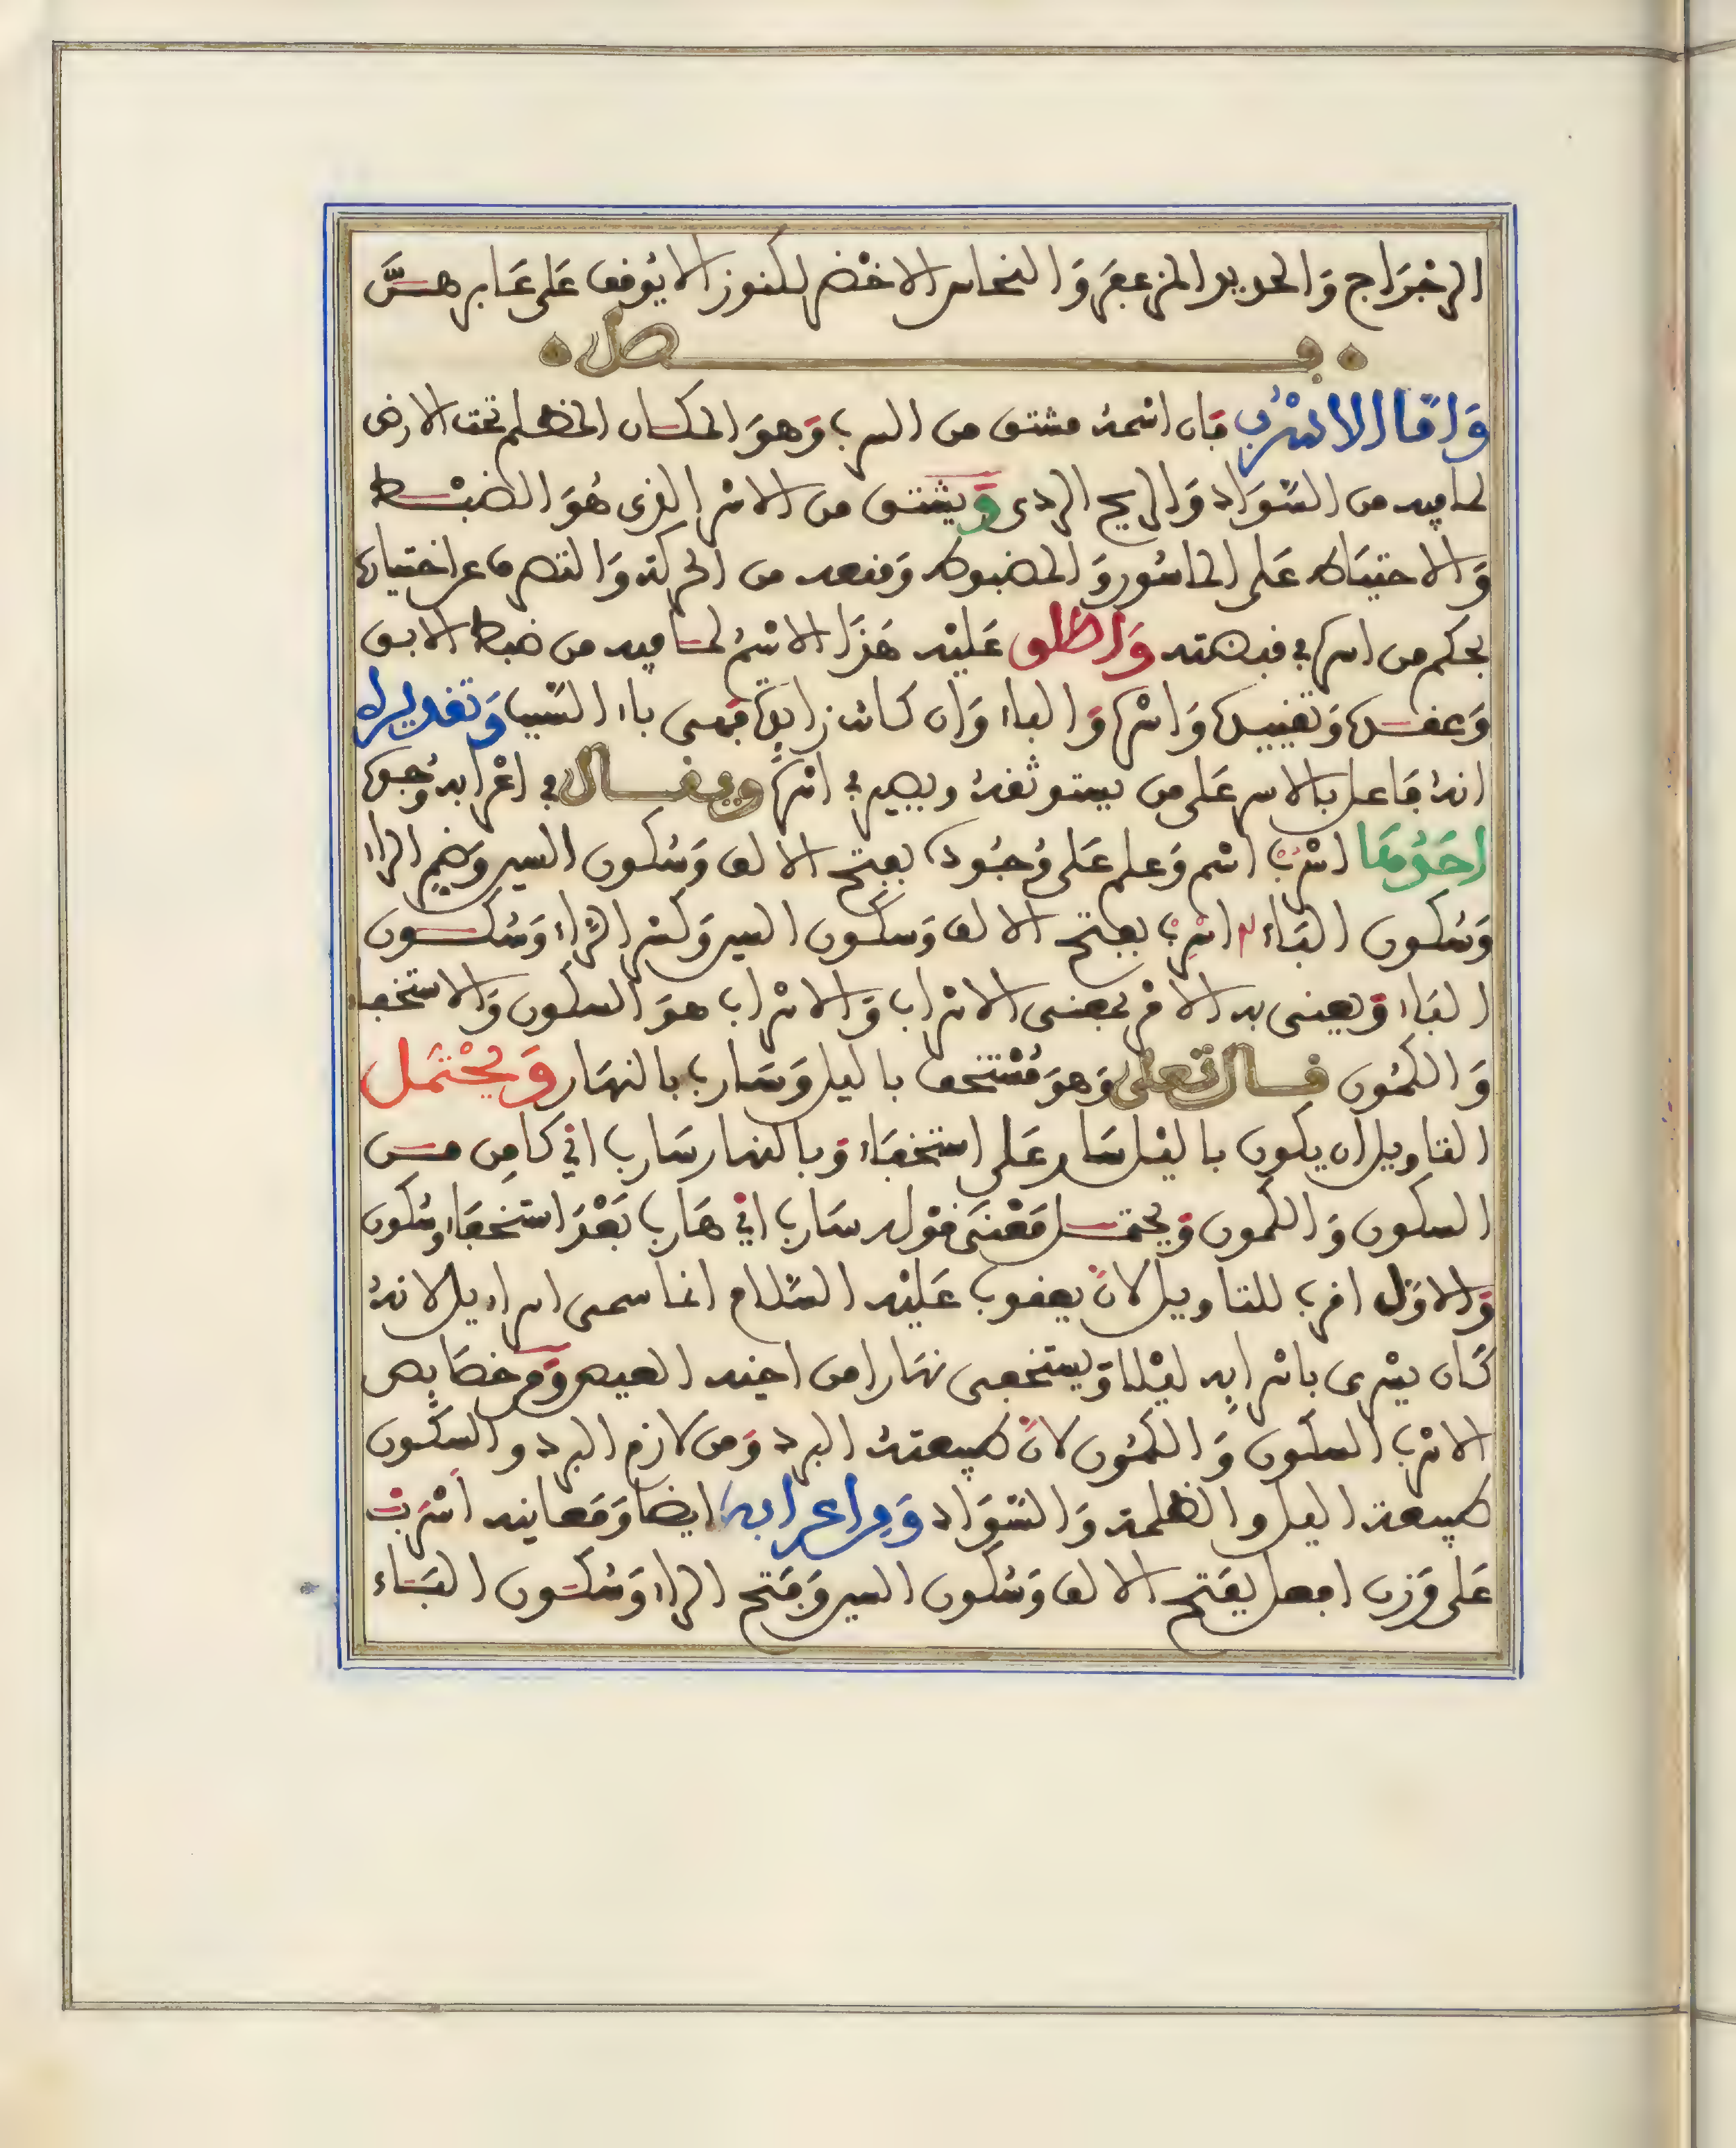 الزجَراج وَالحديد المزعفر وَالنحاس الاخضر لكنوز لا يُوقف عَلى عَابرهسَّ
فصل
وَامّا الاسْرُب فان اسْمهُ مشتق من السرب وَهوَ المكان المظلم تحت الارض
لما فيه من السّوَاد وَالريح الردى وَيشتق من الاسر الذى هُوَ الضبْط
وَالاحتيَاط عَلى الماسُور وَالمضبوط وَمنعه من الحركة وَالتصرف عن اختيارها
بحكم من اسرها في قبضته وَاطلق عَليْه هَذا الاسْمُ لما فيه من ضبط الابق
وَعقدها وَتقييدها وَاسْرها وَالباء وَان كانت زايدة فهى باء السّبب وَتقديره
انهُ فاعل بالاسر عَلى من يستوثقهُ ويصير في اسْرها ويقال في اعْرابه وُجوها
احَدُهَا اسْرُبْ اسْم وَعلم عَلى وُجُود بفتح الالف وَسُكون السين وَضم الراء
وَسُكون البَاء اسْرِبْ بفتح الالف وَسكون السين وَكسْر الرّاء وَسُكون
الباء وَيعنى به الامْر بمعنى الاسْراب وَالاسْراب هوَ السكون وَالاستخفا
وَالكمُون قال تعلى وَهوَ مُسْتخف بالليل وَسَارب بالنهَار وَيَحْتمَل
التاويل ان يكون بالليْل سَار عَلى استخفَاء وَبالنهار سَارب اىْ كامِن من
السكون وَالكمون وَيحتمل مَعْنَى قوْله سَارب اىْ هَارب بَعْدَ استخفَاء وسُكون
وَالاوّل اقرب للتاويل لانّ يعقوب عَليْه السّلام انما سمى اسراءيل لانهُ
كَان يسْرى باسْرابِه ليْلا وَيستخفى نهَارا من اخيه العيص وَمن خصَايص
الاسْرب السكون وَالكمُون لانّ طبيعتهُ البرد وَمن لازم البرد والسكون
طبيعة الليل والظلمة وَالسّوَاد وَمن اعرابه ايضا وَمَعانيه اسْرَبْ
عَلى وَزن افعل بفَتح الالف وَسُكون السين وَفَتح الراء وَسُكون البَاء